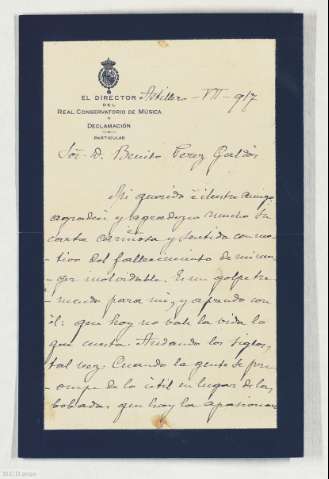 EL DIRECTOR
DEL
REAL CONSERVATORIO DE MÚSICA
Y
DECLAMACIÓN
PARTICULAR
Astillero - VII - 917
Sor. D. Benito Perez Galdós
Mi querido é ilustre amigo
agradecí y agradezco mucho su
carta cariñosa y sentida con mo-
-tivo del fallecimiento de mi mu-
-jer inolvidable. Es un golpe tre-
-mendo para mi, y aprendo con
él: que hoy no vale la vida lo
que cuesta. Andando los siglos,
tal vez. Cuando la gente se preo-
-cupe de lo útil en lugar de las
bobadas que hoy la apasionan